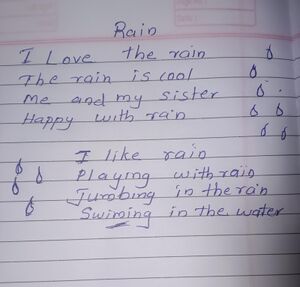 Rain
I Love the rain
The rain is cool
Me and my sister
Happy with rain
I like rain
Playing with rain
Jumbing in the rain
Swiming in the water